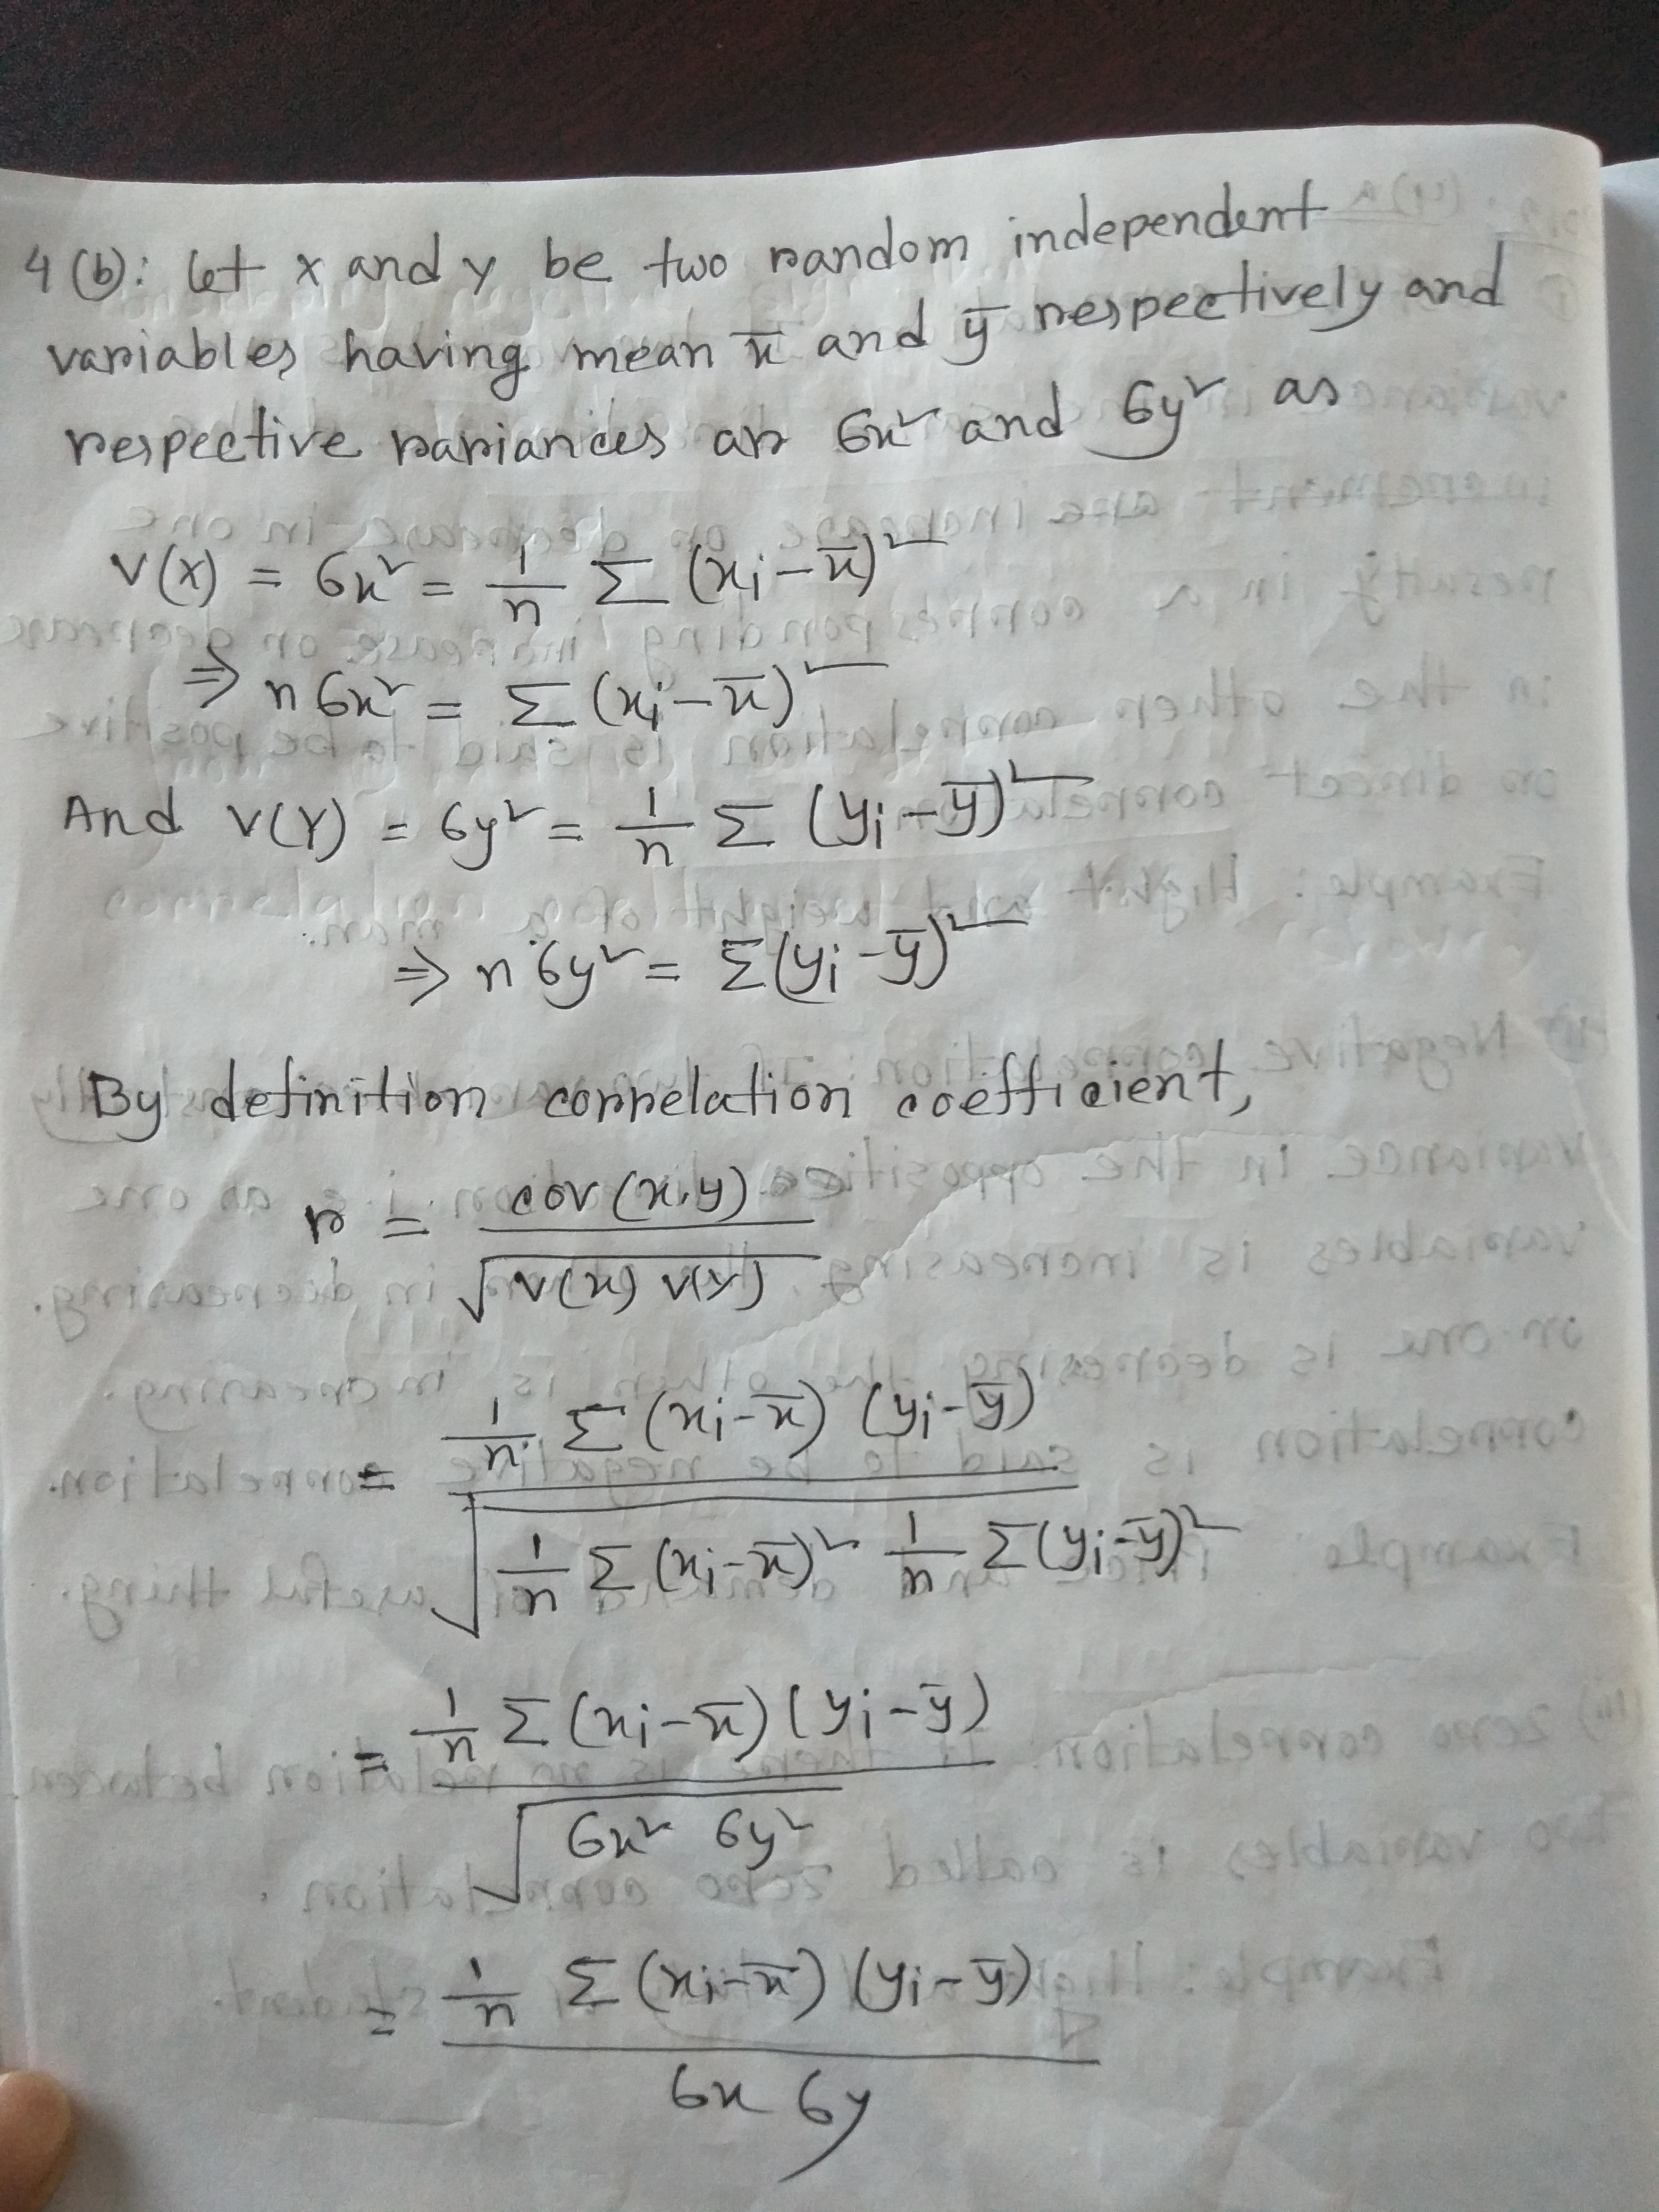 4(b): Let x and y be two random independent
variables having mean x̄ and ȳ respectively and
respective variances are σx² and σy² as
V(X) = σx² = 1/n Σ (xi - x̄)²
⇒ nσx² = Σ (xi - x̄)²
And V(Y) = σy² = 1/n Σ (yi - ȳ)²
⇒ nσy² = Σ(yi - ȳ)²
By definition correlation coefficient,
r = cov(x,y) / √(V(x) V(Y))
= 1/n Σ (xi - x̄) (yi - ȳ) / √(1/n Σ (xi - x̄)² 1/n Σ(yi - ȳ)²)
= 1/n Σ (xi - x̄) (yi - ȳ) / √(σx² σy²)
= 1/n Σ (xi - x̄) (yi - ȳ) / σx σy